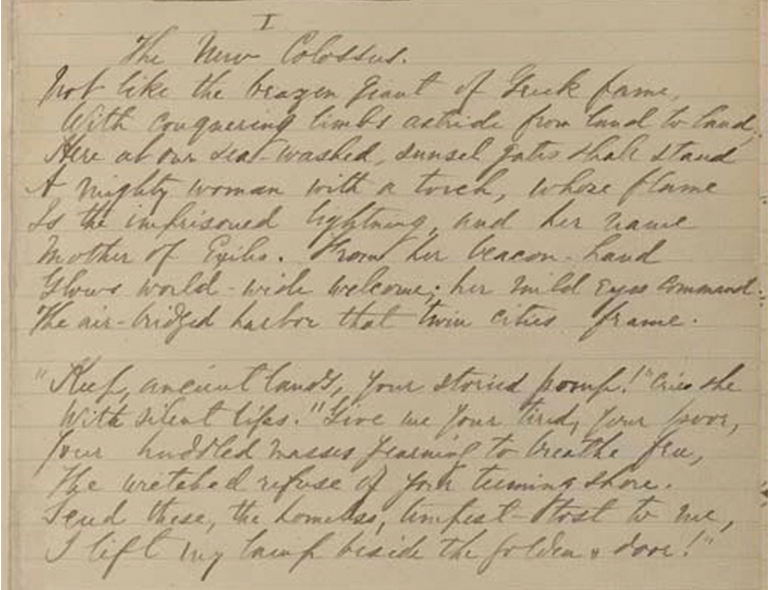 I
The New Colossus.
Not like the brazen giant of Greek fame,
With conquering limbs astride from land to land;
Here at our sea-washed, sunset gates shall stand
A mighty woman with a torch, whose flame
Is the imprisoned lightning, and her name
Mother of Exiles. From her beacon-hand
Glows world-wide welcome; her mild eyes command
The air-bridged harbor that twin cities frame.
"Keep, ancient lands, your storied pomp!" cries she
With silent lips. "Give me your tired, your poor,
Your huddled masses yearning to breathe free,
The wretched refuse of your teeming shore.
Send these, the homeless, tempest-tost to me,
I lift my lamp beside the golden door!"